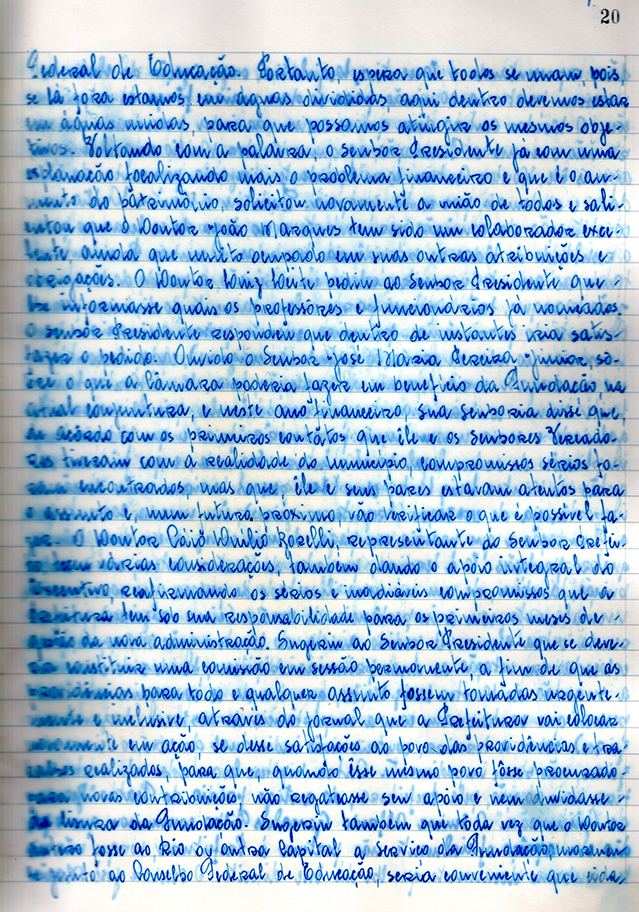 20
Federal de Educação. Portanto, espera que todos se unam, pois
se lá fora estamos em águas divididas, aqui dentro devemos estar
em águas unidas, para que possamos atingir os mesmos obje-
tivos. Voltando com a palavra, o Senhor Presidente já com uma
explanação focalizando mais o problema financeiro e que é o au-
mento do patrimônio, solicitou novamente a união de todos e sali-
entou que o Doutor João Marques tem sido um colaborador exce-
lente, ainda que muito ocupado em suas outras atribuições e
obrigações. O Doutor Luiz Leite pediu ao Senhor Presidente que
lhe informasse quais os professôres e funcionários já nomeados.
O senhor Presidente respondeu que dentro de instantes iria satis-
fazer o pedido. Ouvido o Senhor José Maria Pereira Junior, sô-
bre o que a Câmara poderia fazer em benefício da Fundação, na
atual conjuntura, e neste ano financeiro, Sua Senhoria disse que,
de acôrdo com os primeiros contátos que êle e os Senhores Vereado-
res tiveram com a realidade do município, compromissos sérios fo-
ram encontrados, mas que êle e seus pares estavam atentos para
o assunto e, num futuro próximo, vão verificar o que é possível fa-
zer. O Doutor Caio Duilio Borelli, representante do Senhor Prefei-
to tem várias considerações, também dando o apôio integral do
Executivo, reafirmando os sérios e inadiáveis compromissos que a
Prefeitura tem sob sua responsabilidade para os primeiros meses de
gestão da nova administração. Sugeriu ao Senhor Presidente que se deve-
ria constituir uma comissão em sessão permanente, a fim de que as
providências para todo e qualquer assunto fossem tomadas urgente-
mente e inclusive, através do jornal que a Prefeitura vai colocar
novamente em ação, se desse satisfações ao povo das providências e tra-
balhos realizados, para que, quando êsse mesmo povo fôsse procurado
para novas contribuições, não regateasse seu apôio e nem duvidasse
da lisura da Fundação. Sugeriu também que toda vez que o Doutor
fosse ao Rio ou outra Capital a serviço da Fundação,
junto ao Conselho Federal de Educação, seria conveniente que